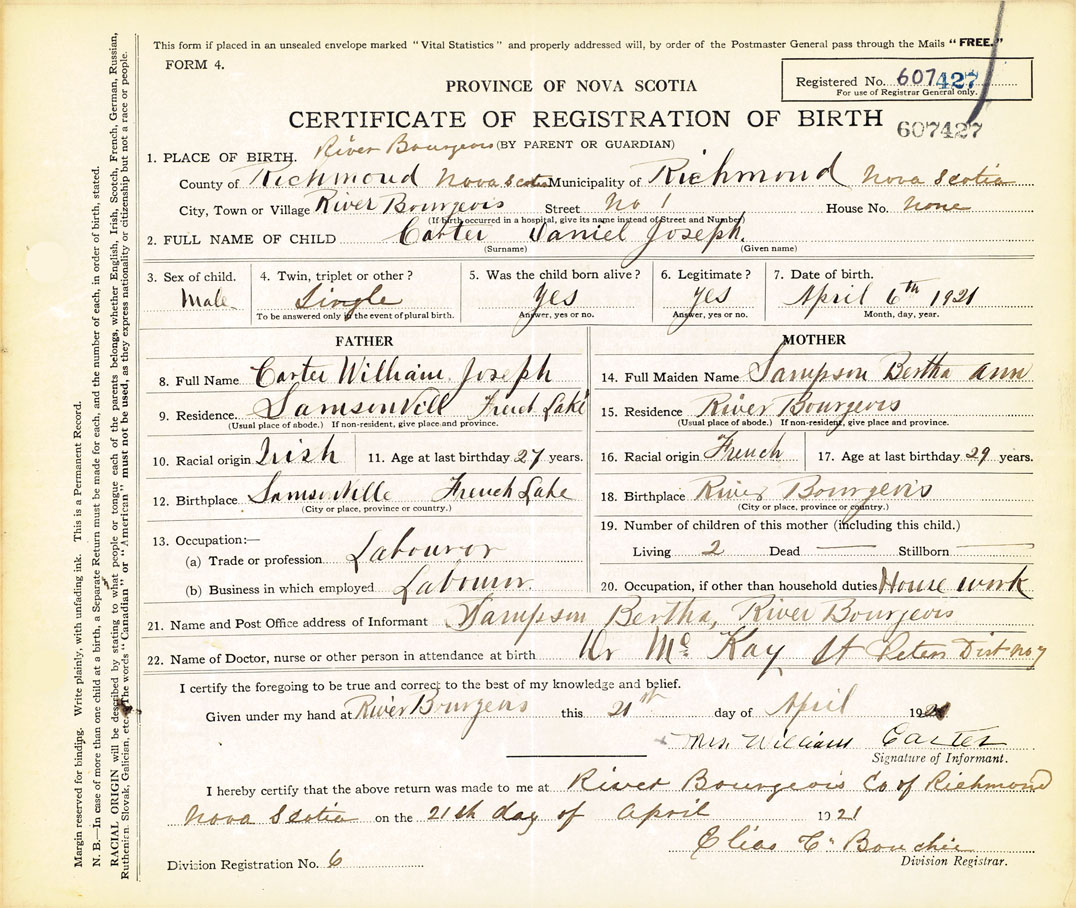 This form if placed in an unsealed envelope marked "Vital Statistics" and properly addressed will, by order of the Postmaster General pass through the Mails "FREE."
FORM 4.
Registered No. 607427
For use of Registrar General only.
PROVINCE OF NOVA SCOTIA
CERTIFICATE OF REGISTRATION OF BIRTH
607427
River Bourgeois (BY PARENT OR GUARDIAN)
1. PLACE OF BIRTH.
County of Richmond Nova Scotia Municipality of Richmond Nova Scotia
City, Town or Village River Bourgeois Street No 1 House No. none
(If birth occurred in a hospital, give its name instead of Street and Number)
2. FULL NAME OF CHILD Carter Daniel Joseph.
(Surname) (Given name)
3. Sex of child. 4. Twin, triplet or other? 5. Was the child born alive? 6. Legitimate? 7. Date of birth.
Male Single Yes Yes April 6th 1921
To be answered only in the event of plural birth. Answer, yes or no. Answer, yes or no. Month, day, year.
FATHER
8. Full Name Carter William Joseph
9. Residence. Samsonvill French Lake
(Usual place of abode.) If non-resident, give place and province.
10. Racial origin Irish 11. Age at last birthday 27 years.
12. Birthplace Samsonville French Lake
(City or place, province or country.)
13. Occupation:—
(a) Trade or profession Labouror
(b) Business in which employed Labouror
MOTHER
14. Full Maiden Name Sampson Bertha ann
15. Residence River Bourgeois
(Usual place of abode.) If non-resident, give place and province.
16. Racial origin French 17. Age at last birthday 29 years.
18. Birthplace River Bourgeois
(City or place, province or country.)
19. Number of children of this mother (including this child.)
Living 2 Dead — Stillborn —
20. Occupation, if other than household duties House work
21. Name and Post Office address of Informant Sampson Bertha, River Bourgeois
22. Name of Doctor, nurse or other person in attendance at birth Dr McKay St Peters Dist no 7
I certify the foregoing to be true and correct to the best of my knowledge and belief.
Given under my hand at River Bourgeois this 21st day of April 1921
Mrs. William Carter
Signature of Informant.
I hereby certify that the above return was made to me at River Bourgeois Co of Richmond
Nova Scotia on the 21th day of April 1921
Elias C. Bouchie
Division Registrar.
Division Registration No. 6
Margin reserved for binding. Write plainly, with unfading ink. This is a Permanent Record.
N. B.—In case of more than one child at a birth, a Separate Return must be made for each, and the number of each, in order of birth, stated.
RACIAL ORIGIN will be described by stating to what people or tongue each of the parents belongs, whether English, Irish, Scotch, French, German, Russian,
Ruthenian, Slovak, Galician, etc. The words "Canadian" or "American" must not be used, as they express nationality or citizenship but not a race or people.